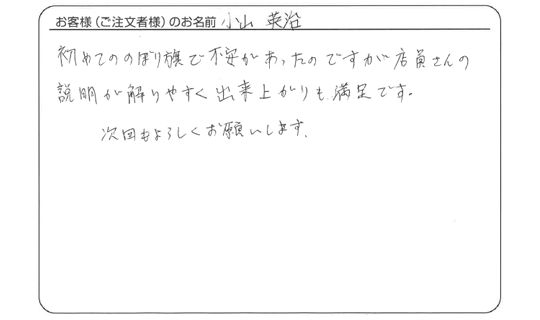 お客様(ご注文者様)のお名前 小山 英治
初めてののぼり旗で不安があったのですが店員さんの
説明が解りやすく出来上がりも満足です。
次回もよろしくお願いします。